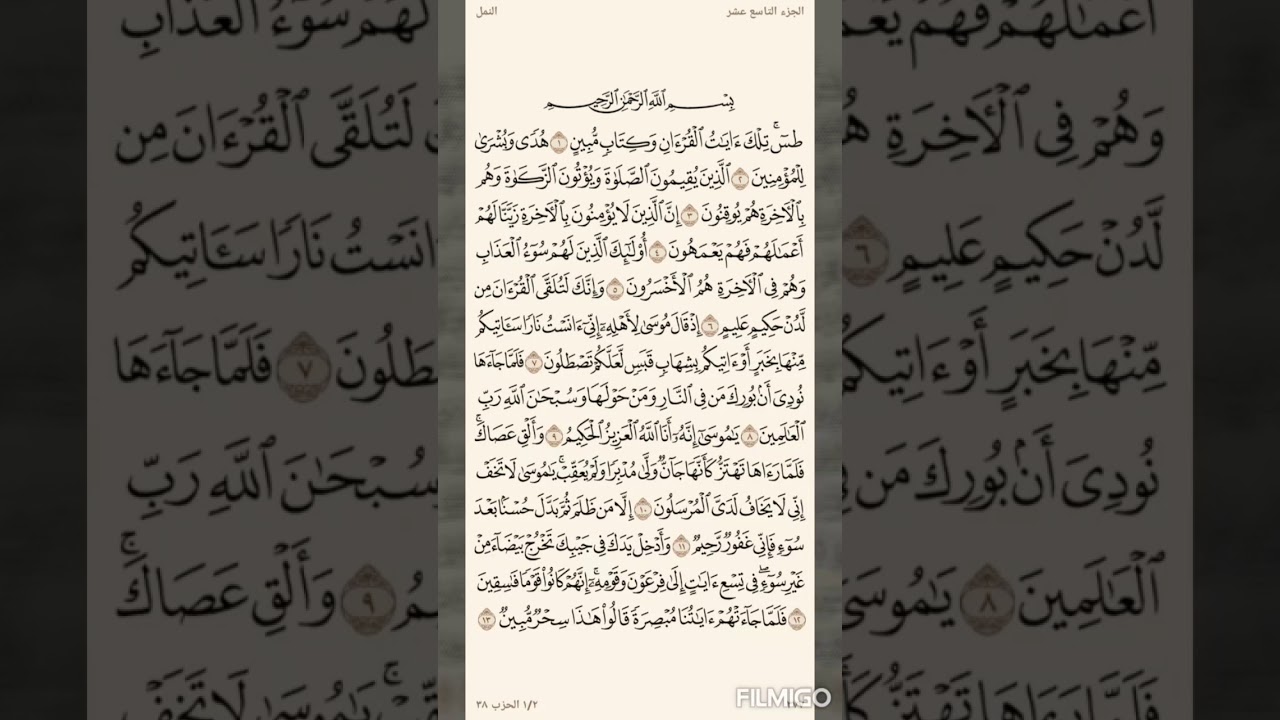 الجزء التاسع عشر
النمل
بِسْمِ ٱللَّهِ ٱلرَّحْمَٰنِ ٱلرَّحِيمِ
طسٓۚ تِلْكَ ءَايَٰتُ ٱلْقُرْءَانِ وَكِتَابٖ مُّبِينٍ ١ هُدٗى وَبُشْرَىٰ
لِلْمُؤْمِنِينَ ٢ ٱلَّذِينَ يُقِيمُونَ ٱلصَّلَوٰةَ وَيُؤْتُونَ ٱلزَّكَوٰةَ وَهُم
بِٱلْأٓخِرَةِ هُمْ يُوقِنُونَ ٣ إِنَّ ٱلَّذِينَ لَا يُؤْمِنُونَ بِٱلْأٓخِرَةِ زَيَّنَّا لَهُمْ
أَعْمَٰلَهُمْ فَهُمْ يَعْمَهُونَ ٤ أُوْلَٰٓئِكَ ٱلَّذِينَ لَهُمْ سُوٓءُ ٱلْعَذَابِ
وَهُمْ فِي ٱلْأٓخِرَةِ هُمُ ٱلْأَخْسَرُونَ ٥ وَإِنَّكَ لَتُلَقَّى ٱلْقُرْءَانَ مِن
لَّدُنْ حَكِيمٍ عَلِيمٍ ٦ إِذْ قَالَ مُوسَىٰ لِأَهْلِهِۦٓ إِنِّيٓ ءَانَسْتُ نَارٗا سَـَٔاتِيكُم
مِّنْهَا بِخَبَرٍ أَوْ ءَاتِيكُم بِشِهَابٖ قَبَسٖ لَّعَلَّكُمْ تَصْطَلُونَ ٧ فَلَمَّا جَآءَهَا
نُودِيَ أَنۢ بُورِكَ مَن فِي ٱلنَّارِ وَمَنْ حَوْلَهَا وَسُبْحَٰنَ ٱللَّهِ رَبِّ
ٱلْعَٰلَمِينَ ٨ يَٰمُوسَىٰٓ إِنَّهُۥٓ أَنَا ٱللَّهُ ٱلْعَزِيزُ ٱلْحَكِيمُ ٩ وَأَلْقِ عَصَاكَۚ
فَلَمَّا رَءَاهَا تَهْتَزُّ كَأَنَّهَا جَآنّٞ وَلَّىٰ مُدْبِرٗا وَلَمْ يُعَقِّبْۚ يَٰمُوسَىٰ لَا تَخَفْ
إِنِّي لَا يَخَافُ لَدَيَّ ٱلْمُرْسَلُونَ ١٠ إِلَّا مَن ظَلَمَ ثُمَّ بَدَّلَ حُسْنَۢا بَعْدَ
سُوٓءٖ فَإِنِّي غَفُورٞ رَّحِيمٞ ١١ وَأَدْخِلْ يَدَكَ فِي جَيْبِكَ تَخْرُجْ بَيْضَآءَ مِنْ
غَيْرِ سُوٓءٖۖ فِي تِسْعِ ءَايَٰتٍ إِلَىٰ فِرْعَوْنَ وَقَوْمِهِۦٓۚ إِنَّهُمْ كَانُواْ قَوْمٗا فَٰسِقِينَ
١٢ فَلَمَّا جَآءَتْهُمْ ءَايَٰتُنَا مُبْصِرَةٗ قَالُواْ هَٰذَا سِحْرٞ مُّبِينٞ ١٣
١/٢ الحزب ٣٨
FILMIGO